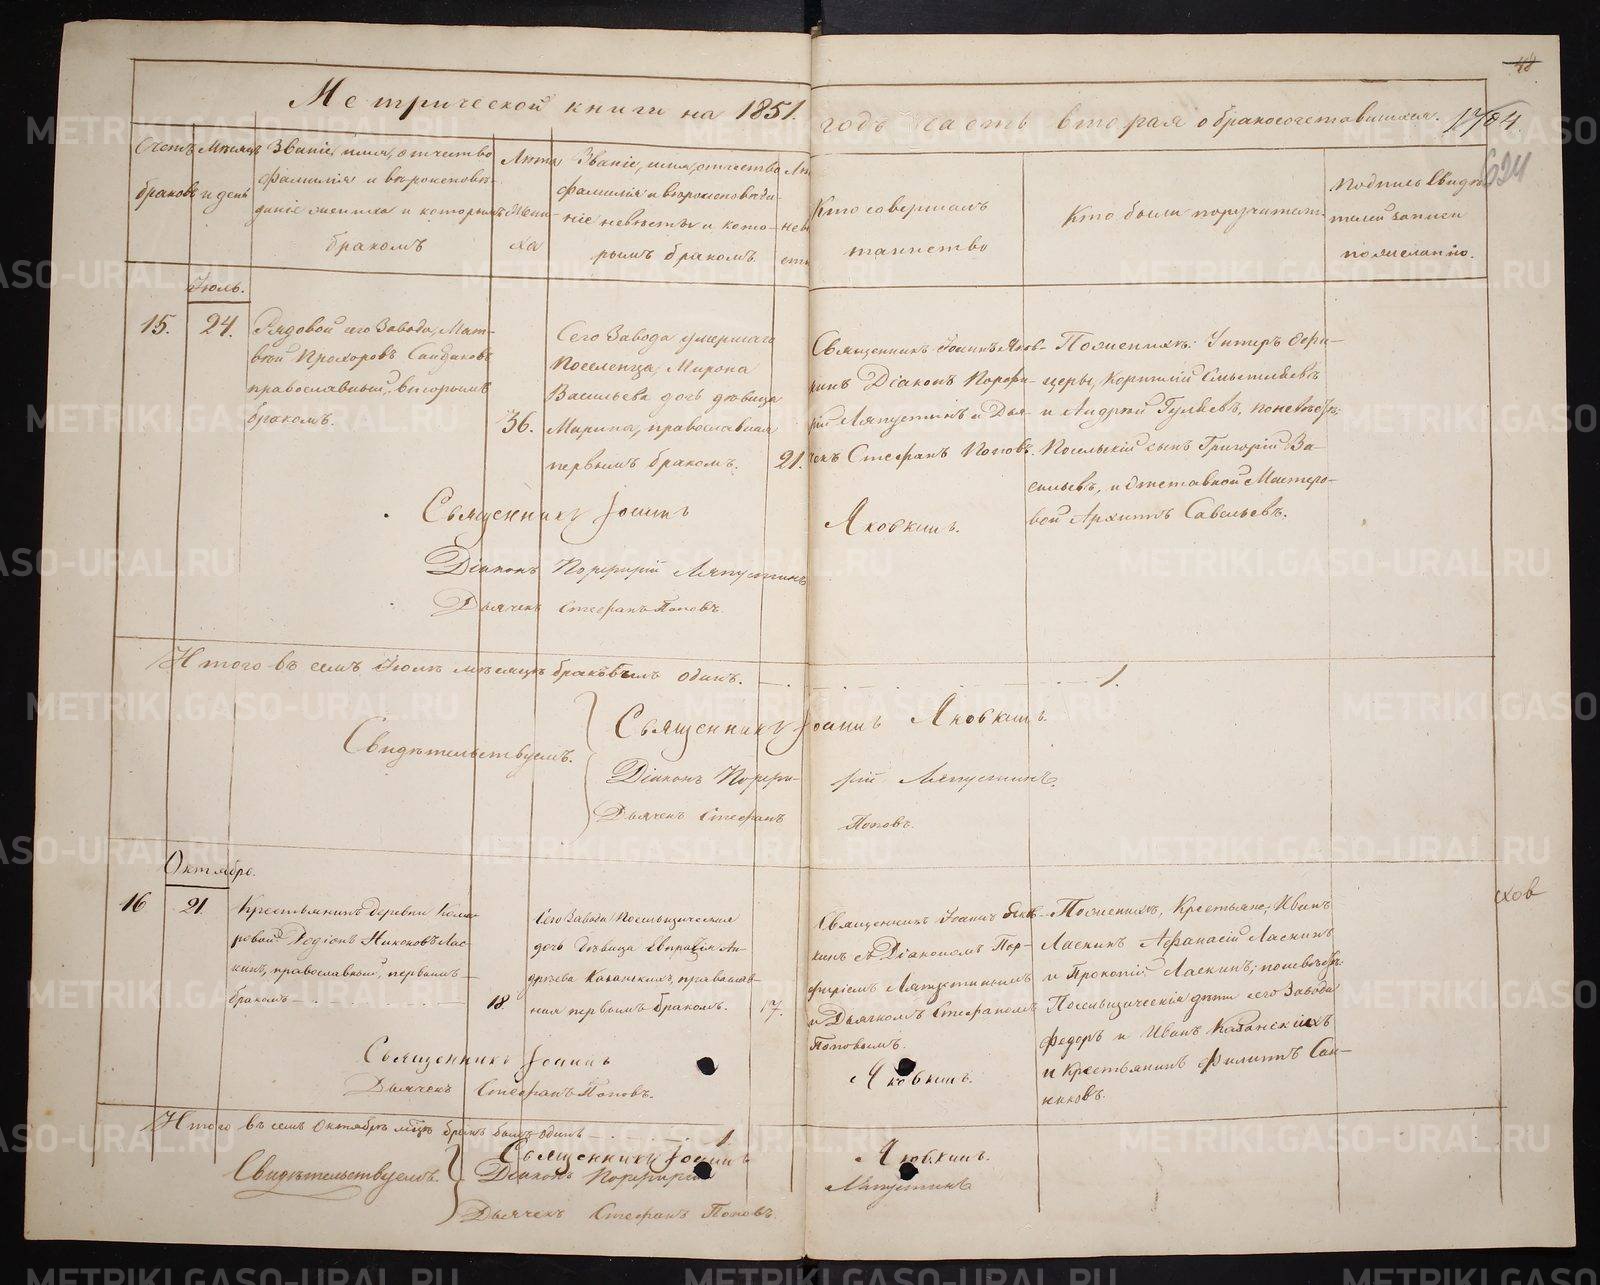 48
Метрической книги на 1851. годъ часть вторая о бракосочетавшихся. 1704.
624
Счетъ браковъ
Мѣсяцъ и день
Званіе, имя, отчество
фамилія и вѣроисповѣ-
даніе жениха и которымъ
бракомъ
Лѣта
жени-
ха
Званіе, имя, отчество
фамилія и вѣроисповѣда-
ніе невѣсты и кото-
рымъ бракомъ.
Кто совершалъ
таинство
Кто были поручители.
Подпись свидѣ-
телей записи
по желанію.
Іюль.
15.
24.
Рядовой сего Завода, Мат-
вѣй Прохоровъ
православный, вторымъ
бракомъ.
36.
Сего Завода умершаго
Поселенца, Мирона
Васильева дочь дѣвица
Марина, православная
первымъ бракомъ.
21.
Священникъ Іоаннъ Яков-
кинъ Діаконъ Порфи-
рій Ляпустинъ и Дья-
чекъ Стефанъ Поповъ.
По женихѣ: Унтеръ офи-
церы, Корнилій
и Андрей Гуляевъ, по невѣстѣ:
сынъ Григорій Ва-
сильевъ, и отставной Мастеро-
вой Архипъ Савельевъ.
Священникъ Іоаннъ Яковкинъ.
Діаконъ Порфирій Ляпустинъ
Дьячекъ Стефанъ Поповъ.
Итого въ семъ Іюлѣ мѣсяцѣ бракъ былъ одинъ. 1.
Свидѣтельствуемъ.
Священникъ Іоаннъ Яковкинъ.
Діаконъ Порфи-рій Ляпустинъ.
Дьячекъ Стефанъ Поповъ.
Октябрь.
16
21.
Крестьянинъ деревни Кома-
ровой Родіонъ Никоновъ Лас-
кинъ, православный, первымъ
бракомъ
18.
Сего Завода Поселыцическая
дочь дѣвица Евпраксія Ан-
дреева Казанскихъ, православ-
ная первымъ бракомъ.
17.
Священникъ Іоаннъ Яков-
кинъ съ Діакономъ Пор-
фиріемъ Ляпустинымъ
и Дьячкомъ Стефаномъ
Поповымъ.
По женихѣ, Крестьяне; Иванъ
Ласкинъ Афанасій Ласкинъ
и Прокопій Ласкинъ; по невѣстѣ:
Поселыцическія дѣти сего Завода
Федоръ и Иванъ Казанскихъ
и Крестьянинъ Филипъ Сан-
никовъ.
схов
Священникъ Іоаннъ Яковкинъ.
Дьячекъ Стефанъ Поповъ.
Итого въ семъ Октябрѣ мѣсяцѣ бракъ былъ одинъ 1.
Свидѣтельствуемъ.
Священникъ Іоаннъ Яковкинъ.
Діаконъ Порфирій Ляпустинъ
Дьячекъ Стефанъ Поповъ.
METRIKI.GASO-URAL.RU